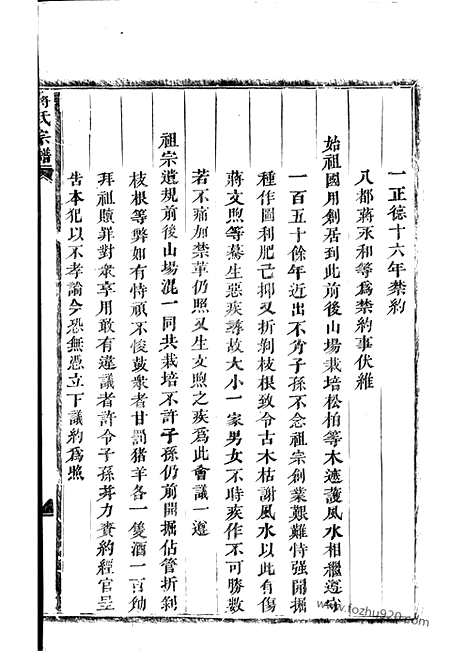 一正德十六年禁約
八都蔣永和等爲禁約事伏維
始祖國用創居到此前後山場栽培松柏等木遮護風水相繼遵守
一百五十餘年近出不肖子孫不念祖宗創業艱難恃强開掘
種作圖利肥己抑又折剁枝根致令古木枯謝風水以此有傷
蔣文煦等驀生惡疾尋故大小一家男女不時疾作不可勝數
若不痛加禁革仍照又生文煦之疾爲此會議一遵
祖宗遺規前後山場混一同共栽培不許子孫仍前開掘佔管折剁
枝根等弊如有恃頑不悛鼓衆者甘罰猪羊各一隻酒一百觔
拜祖贖罪對衆享用敢有違議者許令子孫并力賫約經官呈
告本犯以不孝論今恐無憑立下議約爲照
蔣氏宗譜
www.tozhu920.com